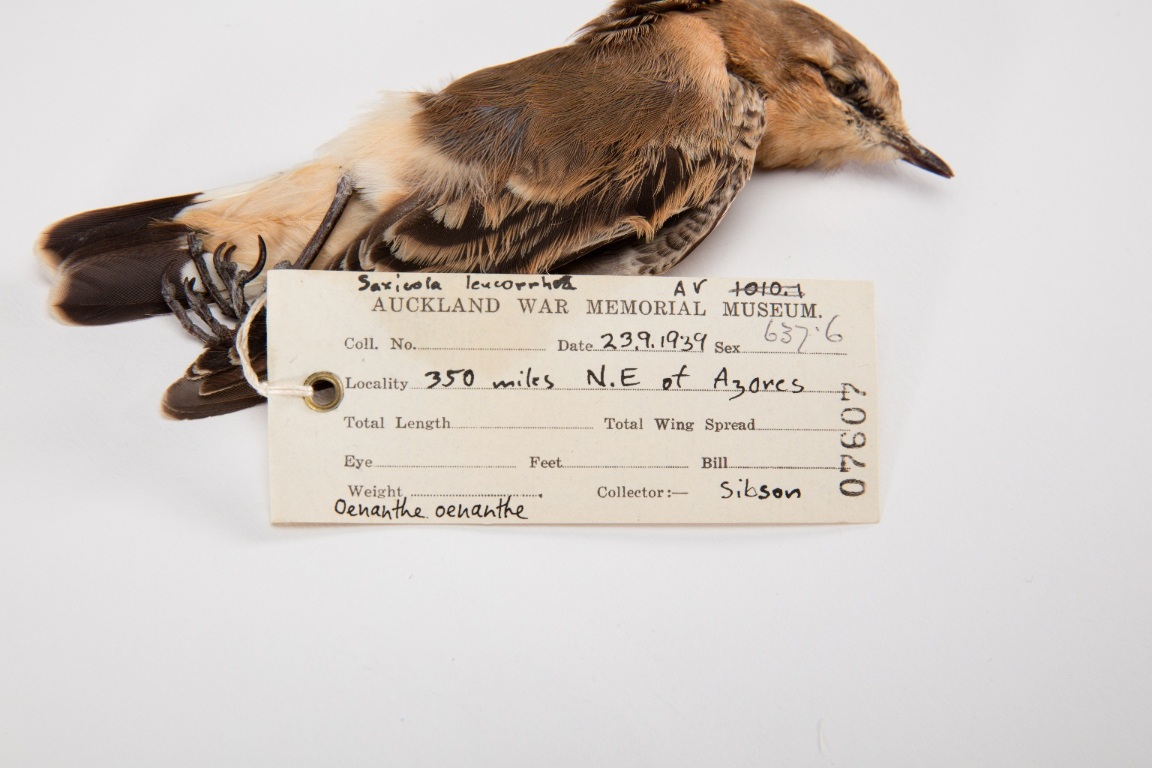 Saxicola leucorrhoa AV 1010.1
AUCKLAND WAR MEMORIAL MUSEUM.
637.6
Coll. No. Date 23.9.1939 Sex
Locality 350 miles N.E of Azores
Total Length Total Wing Spread
Eye Feet Bill
Weight Collector:— Sibson
Oenanthe oenanthe
07607